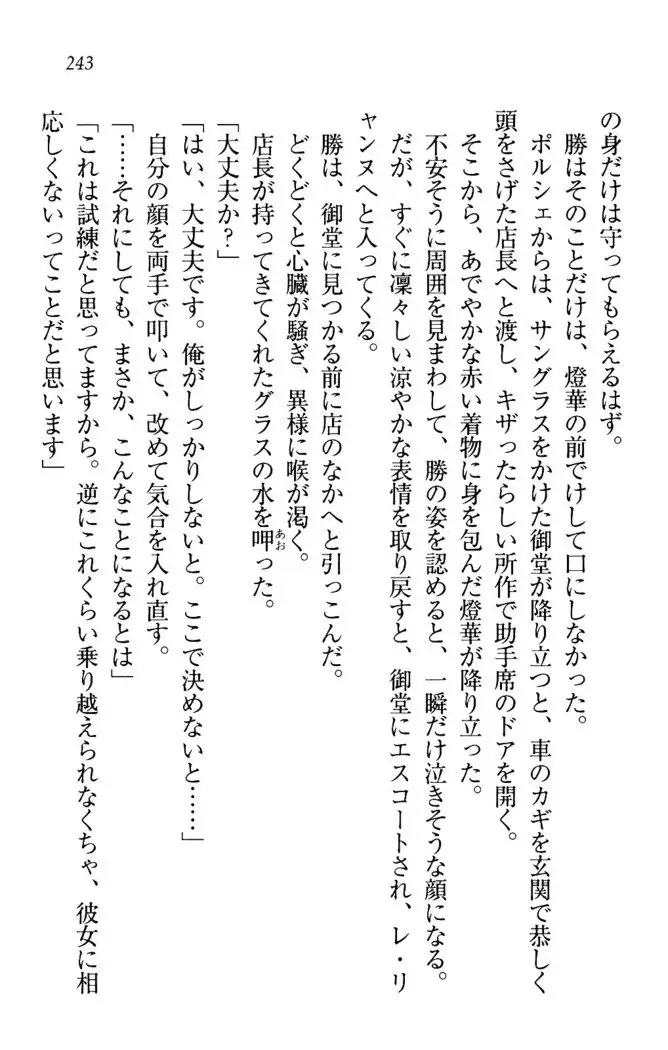 243
の身だけは守ってもらえるはず。
勝はそのことだけは、燈華の前でけして口にしなかった。
ポルシェからは、サングラスをかけた御堂が降り立つと、車のカギを玄関で恭しく
頭をさげた店長へと渡し、キザったらしい所作で助手席のドアを開く。
そこから、あでやかな赤い着物に身を包んだ燈華が降り立った。
不安そうに周囲を見まわして、勝の姿を認めると、一瞬だけ泣きそうな顔になる。
だが、すぐに凜々しい涼やかな表情を取り戻すと、御堂にエスコートされ、レ・リ
ャンヌへと入ってくる。
勝は、御堂に見つかる前に店のなかへと引っこんだ。
どくどくと心臓が騒ぎ、異様に喉が渇く。
店長が持ってきてくれたグラスの水を呷あおった。
「大丈夫か？」
「はい、大丈夫です。俺がしっかりしないと。ここで決めないと……」
自分の顔を両手で叩いて、改めて気合を入れ直す。
「……それにしても、まさか、こんなことになるとは」
「これは試練だと思ってますから。逆にこれくらい乗り越えられなくちゃ、彼女に相
応しくないってことだと思います」